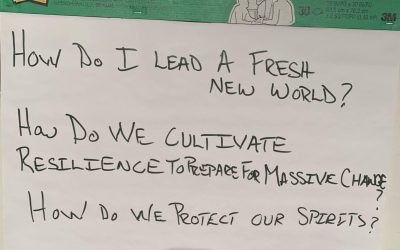 3M
How Do I LEAD A FRESH
NEW WORLD?
How Do WE CULTIVATE
RESILIENCE TO PREPARE FOR MASSIVE CHANGE
?
How Do WE PROTECT OUR SPIRITS?